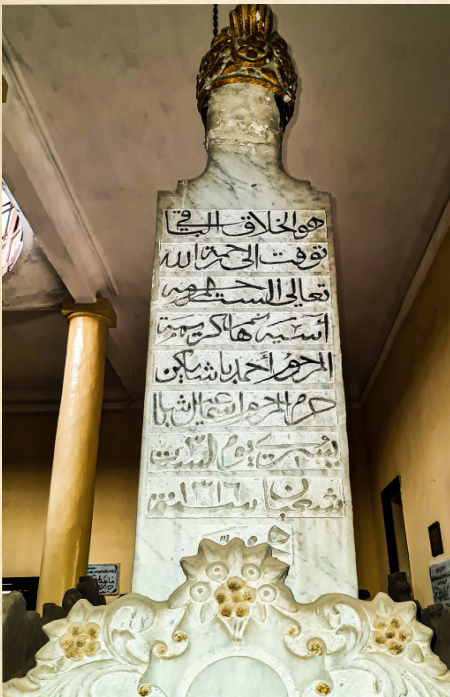 هو الخلاق الباقي
توفت الى رحمة الله
تعالى الست المرحومه
أسيه هانم كريمة
المرحوم أحمد باشا يكن
حرم المرحوم اسماعيل باشا
يسرى يوم السبت
شعبان سنة ١٣١٦